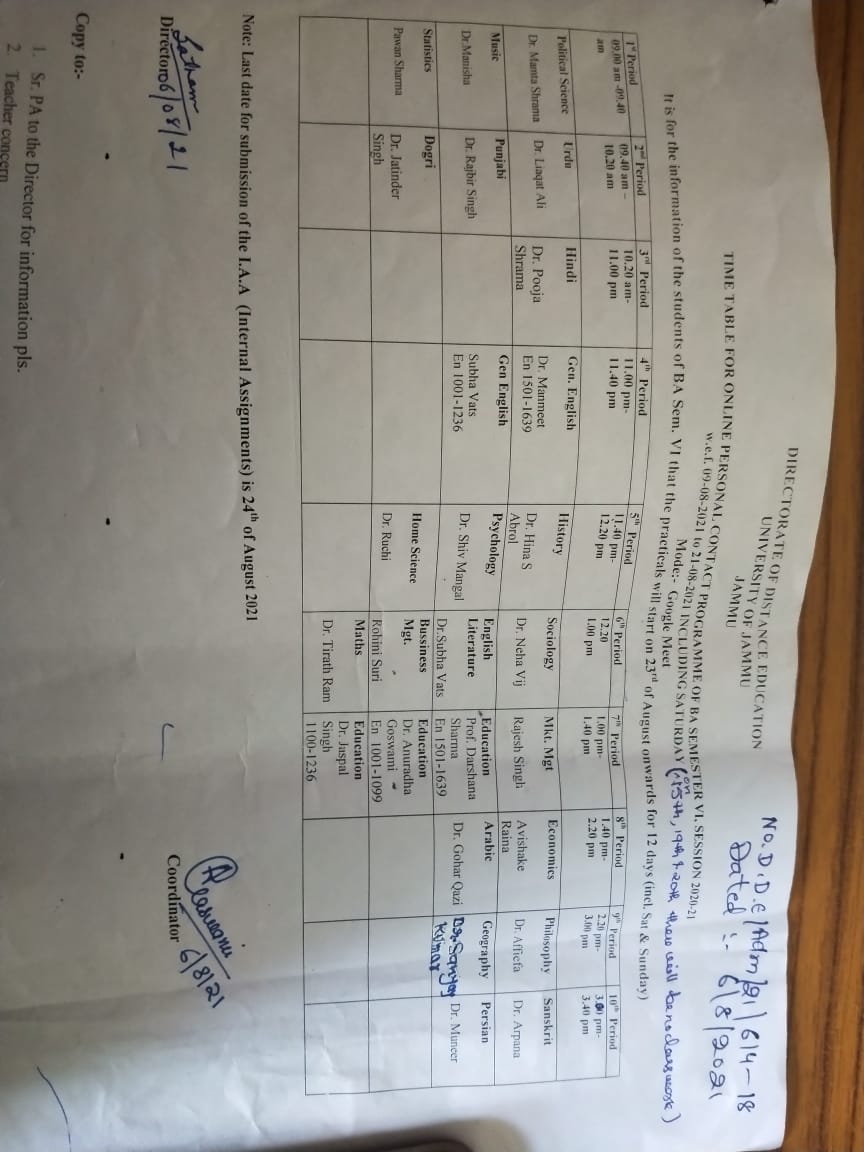 No. D.D.E/Adm/21/614-18
Dated :- 6/8/2021
DIRECTORATE OF DISTANCE EDUCATION
UNIVERSITY OF JAMMU
JAMMU
TIME TABLE FOR ONLINE PERSONAL CONTACT PROGRAMME OF BA SEMESTER VI, SESSION 2020-21
w.e.f. 09-08-2021 to 21-08-2021 INCLUDING SATURDAY (on 15th, 19th & 20th there will be no class work)
Mode:- Google Meet
It is for the information of the students of BA Sem. VI that the practicals will start on 23rd of August onwards for 12 days (incl. Sat & Sunday)
1st Period 2nd Period 3rd Period 4th Period 5th Period 6th Period 7th Period 8th Period 9th Period 10th Period
09.00 am -09.40 09.40 am – 10.20 am- 11.00 pm- 11.40 pm- 12.20 1.00 pm- 1.40 pm- 2.20 pm- 3.00 pm-
am 10.20 am 11.00 pm 11.40 pm 12.20 pm 1.00 pm 1.40 pm 2.20 pm 3.00 pm 3.40 pm
Political Science Urdu Hindi Gen. English History Sociology Mkt. Mgt Economics Philosophy Sanskrit
Dr. Mamta Shrama Dr. Liaqat Ali Dr. Pooja Dr. Manmeet Dr. Hina S Dr. Neha Vij Rajesh Singh Avishake Dr. Affiefa Dr. Arpana
Shrama En 1501-1639 Abrol Raina
Music Punjabi Gen English Psychology English Education Arabic Geography Persian
Literature Prof. Darshana
Dr.Manisha Dr. Rajbir Singh Subha Vats Dr. Shiv Mangal Dr.Subha Vats Sharma Dr. Gohar Qazi Dr. Sanjay Dr. Muneer
En 1001-1236 En 1501-1639 Kumar
Statistics Dogri Home Science Bussiness Education
Mgt. Dr. Anuradha
Pawan Sharma Dr. Jatinder Dr. Ruchi Rohini Suri Goswami
Singh En 1001-1099
Maths Education
Dr. Tirath Ram Dr. Jaspal
Singh
1100-1236
Note: Last date for submission of the I.A.A (Internal Assignments) is 24th of August 2021
Director 06/08/21
Coordinator 6/8/21
Copy to:-
1. Sr. PA to the Director for information pls.
2. Teacher concern